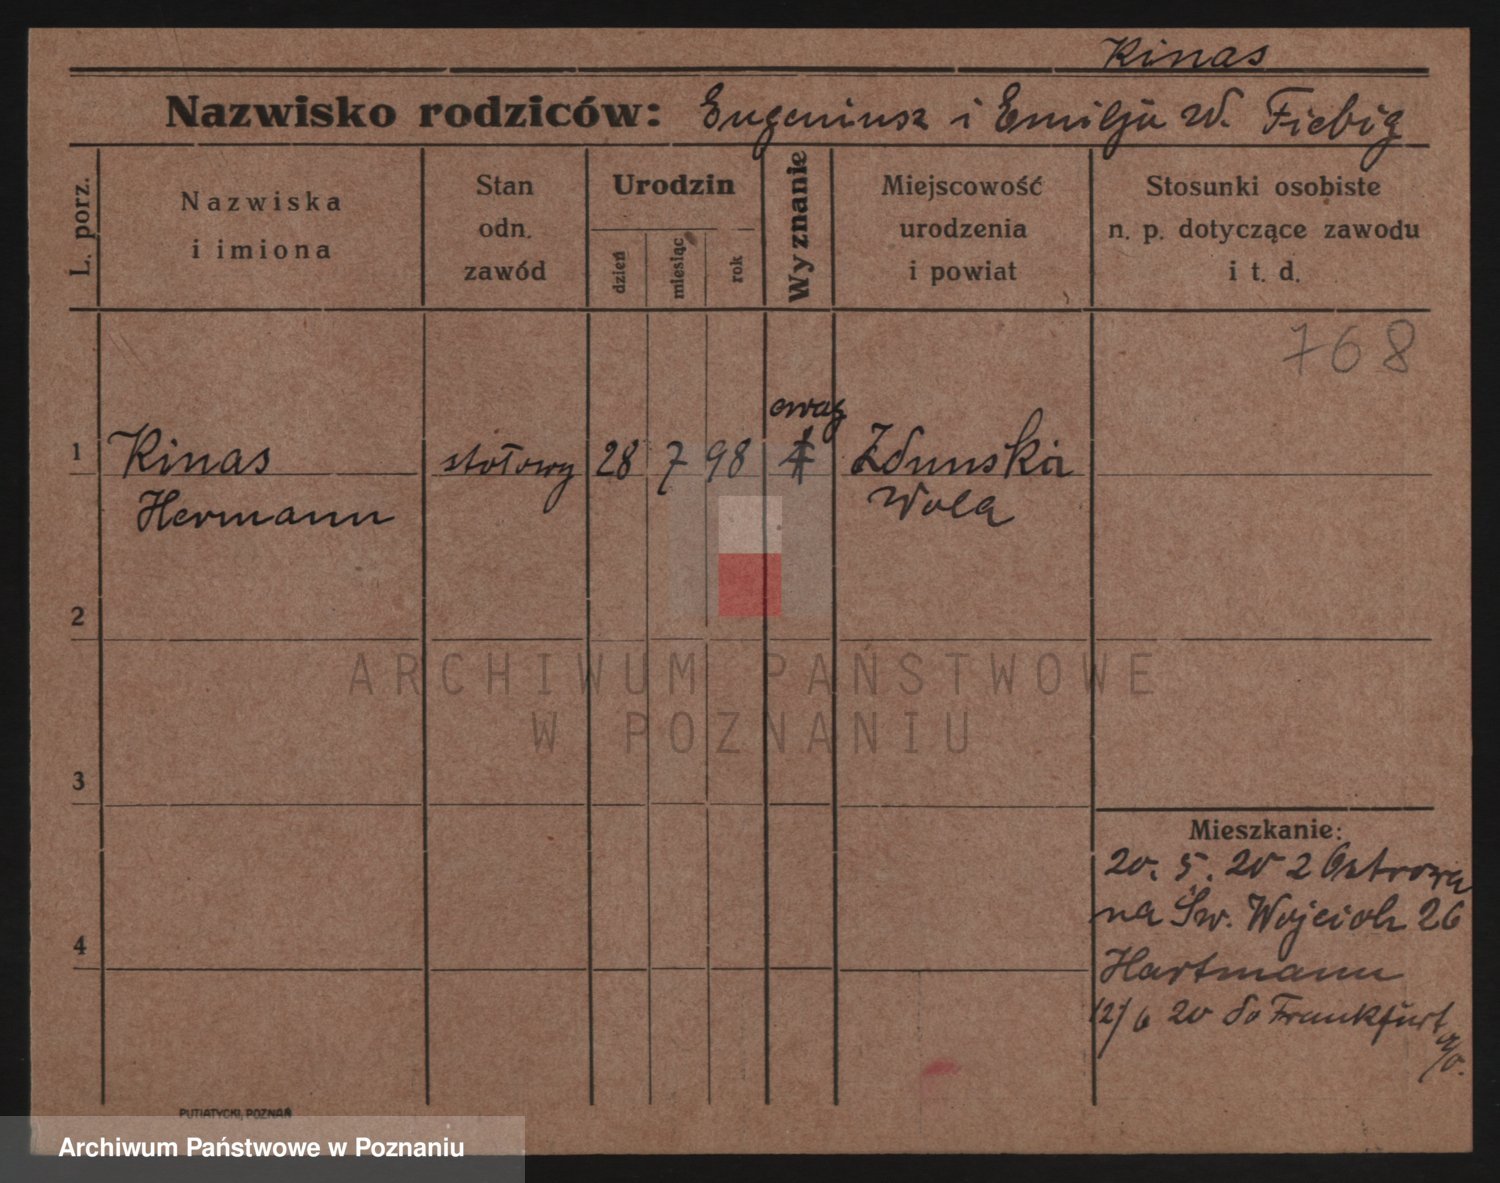 Kinas
Nazwisko rodziców: Eugeniusz i Emilja W. Fiebig
L. porz.
Nazwiska
i imiona
Stan
odn.
zawód
Urodzin
dzień
miesiąc
rok
Wyznanie
Miejscowość
urodzenia
i powiat
Stosunki osobiste
n. p. dotyczące zawodu
i t. d.
768
ewag
1 Kinas stołowy 28 7 98 Zdunska
Hermann Wola
2
3
4
Mieszkanie:
20. 5. 20 z Ostrowa
na Św. Wojciech 26
Hartmann
12/6 20 do Frankfurt
a/O.
ARCHIWUM PAŃSTWOWE
W POZNANIU
PUTIATYCKI, POZNAŃ
Archiwum Państwowe w Poznaniu